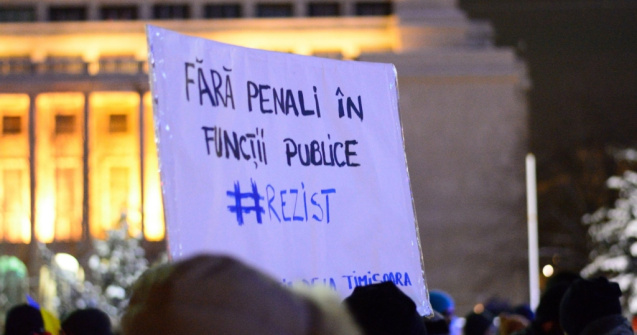 FĂRĂ PENALI ÎN
FUNCȚII PUBLICE
#REZIST
DE LA TIMIȘOARA